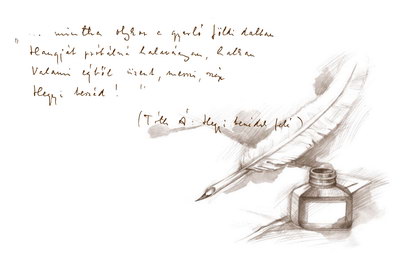 "... mintha olykor e gyarló földi dalban
Hangját próbálná halaványan, halkan
Valami égből üzent, szép
Hegyi beszéd! "
(Tóth Á.: Hegyi beszédek felé)